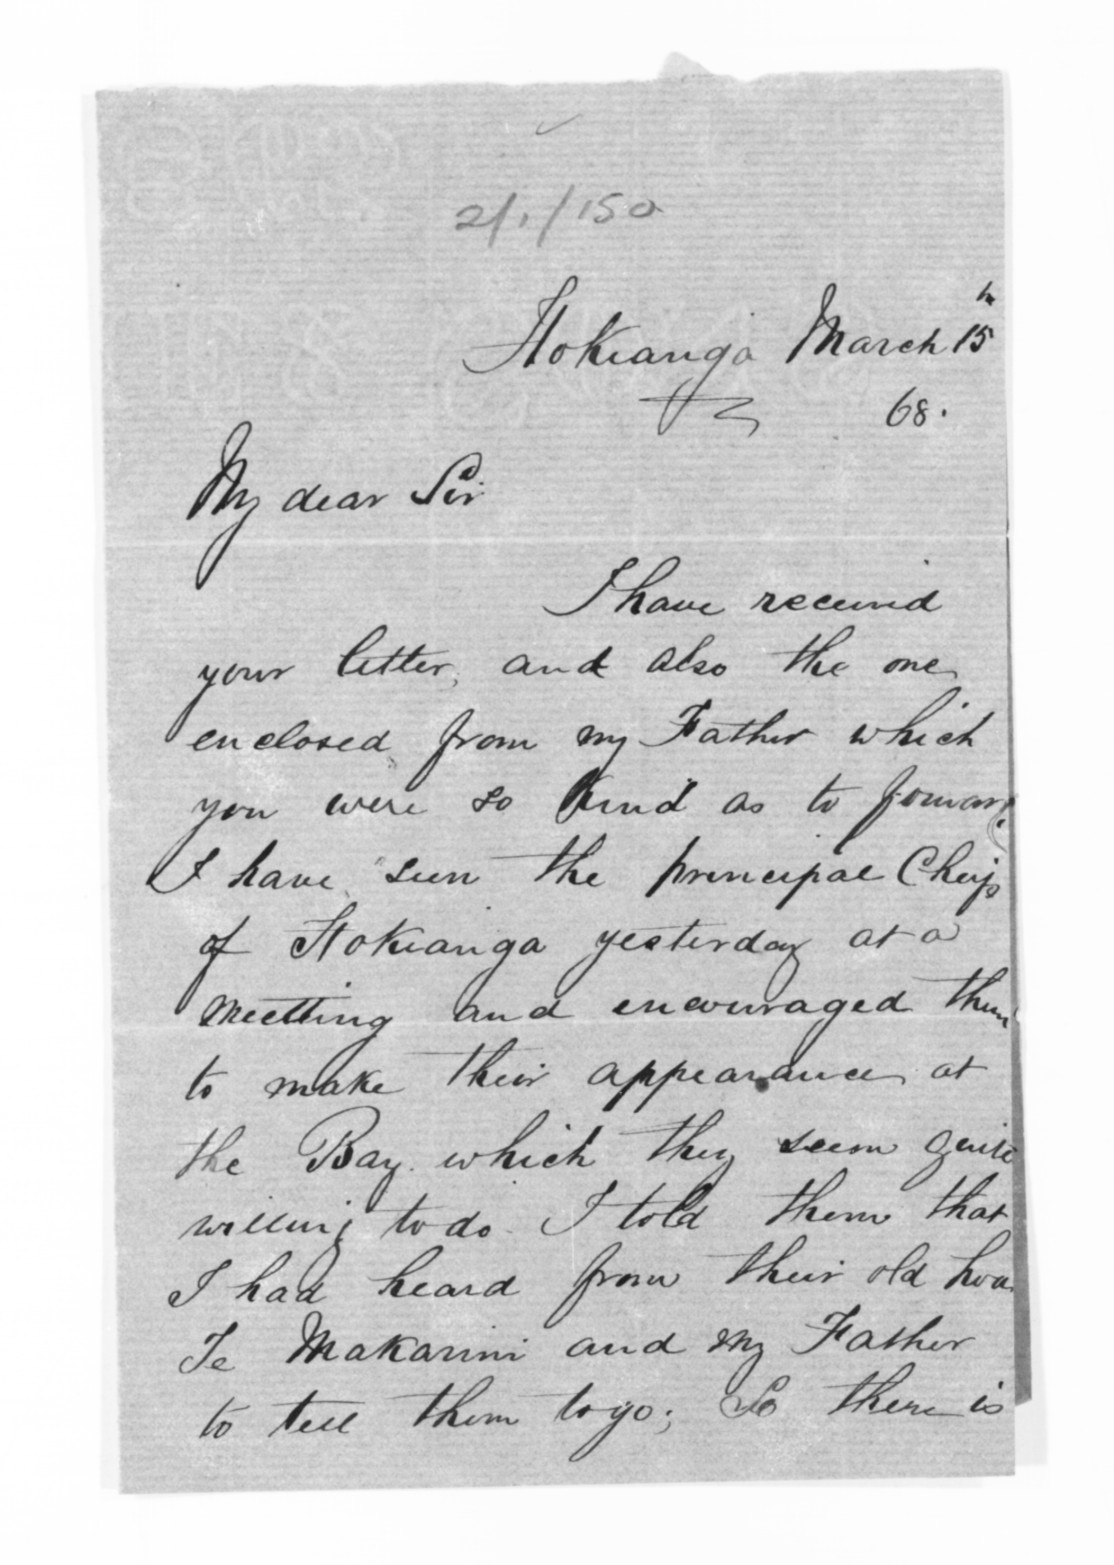 2/1/150
Hokianga March 15th
68.
My dear Sir
I have received
your letter, and also the one
enclosed from my Father which
you were so kind as to forward.
I have seen the principal Chiefs
of Hokianga yesterday at a
meeting and encouraged them
to make their appearance at
the Bay. which they seem quite
willing to do. I told them that
I had heard from their old hoa
Te Makarini and my Father
to tell them to go; So there is